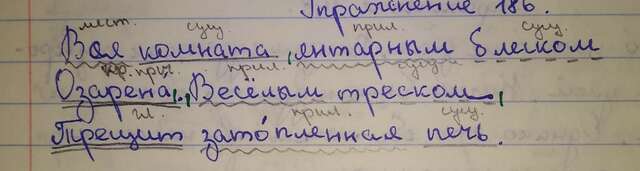 Упражнение 186.
мест. сущ. прил. сущ.
Вся комната, янтарным блеском
кр. прич. прил. сущ.
Озарена. Весёлым треском,
гл. прил. сущ.
Трещит зато́пленная печь.